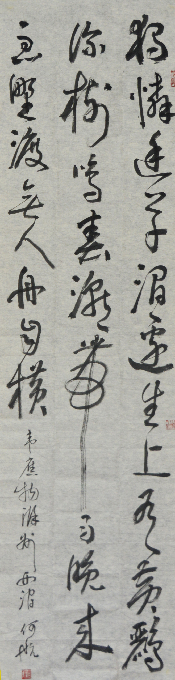 獨憐幽草澗邊生上有黃鸝
深樹鳴春潮帶雨晚來
急野渡無人舟自橫
韋應物滁州西澗 何